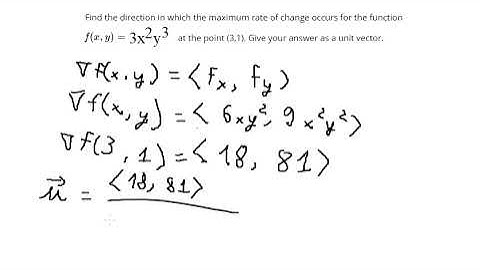 Find the direction in which the maximum rate of change occurs for the function
f(x, y) = 3x²y³ at the point (3,1). Give your answer as a unit vector.
∇f(x,y) = ⟨Fx, fy⟩
∇f(x, y) = ⟨ 6xy³, 9x²y²⟩
∇f(3, 1) = ⟨ 18, 81⟩
u⃗ = ⟨18, 81⟩